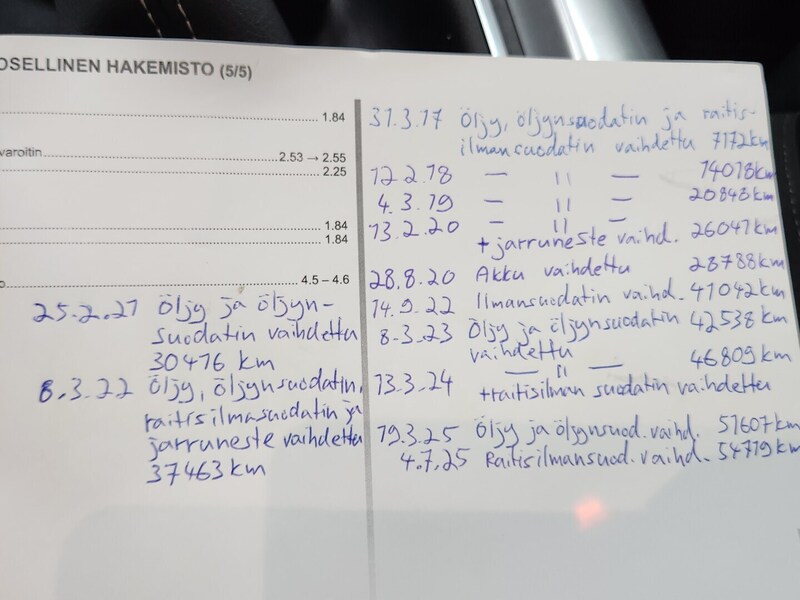 OSELLINEN HAKEMISTO (5/5)
1.84
varoitin 2.53 → 2.55
2.25
1.84
1.84
4.5 – 4.6
25.2.21 Öljy ja öljyn-
suodatin vaihdettu
30476 km
8.3.22 Öljy, öljynsuodatin,
raitisilmasuodatin ja
jarruneste vaihdettu
37463 km
31.3.17 Öljy, öljynsuodatin ja raitis-
ilmansuodatin vaihdettu 7172km
12.2.18 — 〃 — 14018km
4.3.19 — 〃 — 20843km
13.2.20 — 〃 —
+ jarruneste vaihd. 26047km
28.8.20 Akku vaihdettu 28788km
14.9.22 Ilmansuodatin vaihd. 41042km
8.3.23 Öljy ja öljynsuodatin 42538km
vaihdettu
13.3.24 — 〃 — 46809km
+raitisilman suodatin vaihdettu
19.3.25 Öljy ja öljynsuod. vaihd. 51607km
4.7.25 Raitisilmansuod. vaihd. 54719km